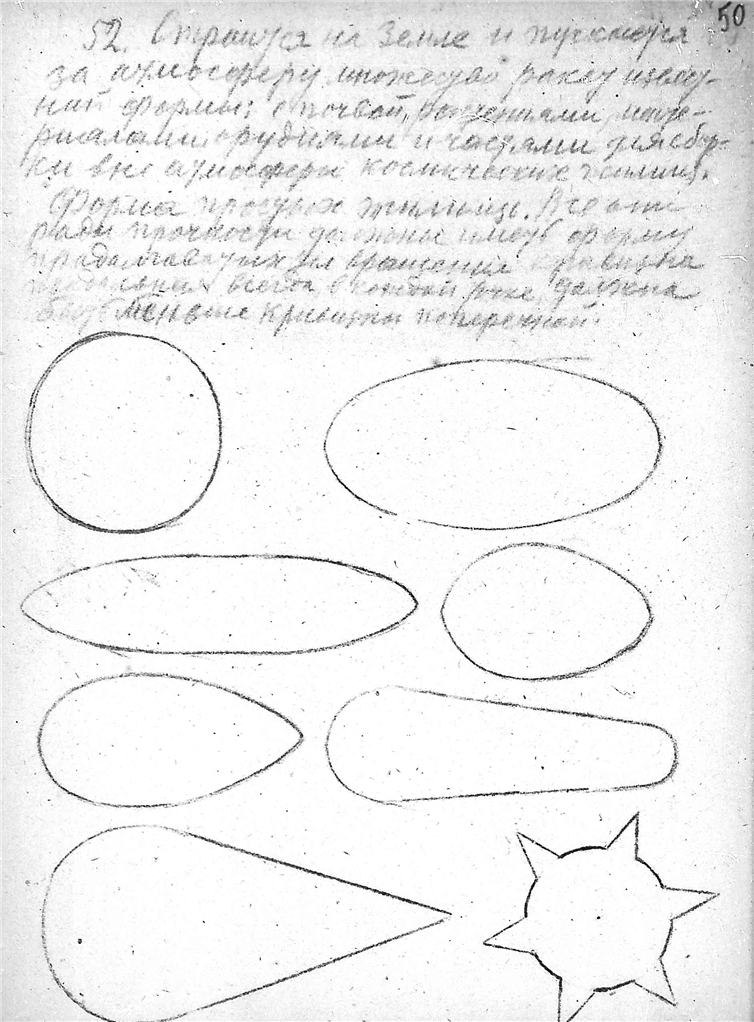 50
52. Строится на Земле и пускается
за атмосферу множество ракет извест-
ной формы: с почвой, растениями, мате-
риалами, орудиями и частями для сбор-
ки вне атмосферы космических жилищ.
Форма простых жилищ. Все они
ради прочности должны иметь форму
тел вращения кривизна
всегда в каждой должна
быть меньше кривизны поперечной.